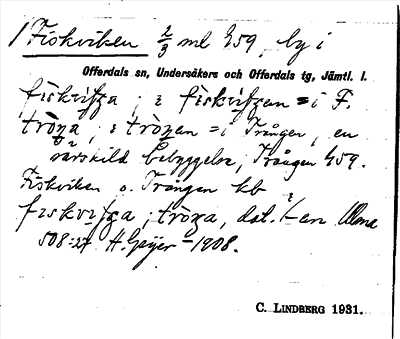 1 Fiskviken 2/3 ml 459, by i
Offerdals sn, Undersåkers och Offerdals tg, Jämtl. l.
fiskvika; i fiskvikan = i F.
tròna; i trònan = i Trången, en
särskild bebyggelse, Trången 459.
Fiskviken o. Trången kb
fiskvika; tròna, dat. -en Alma
508:27 H. Geijer 1908.
C. LINDBERG 1931.